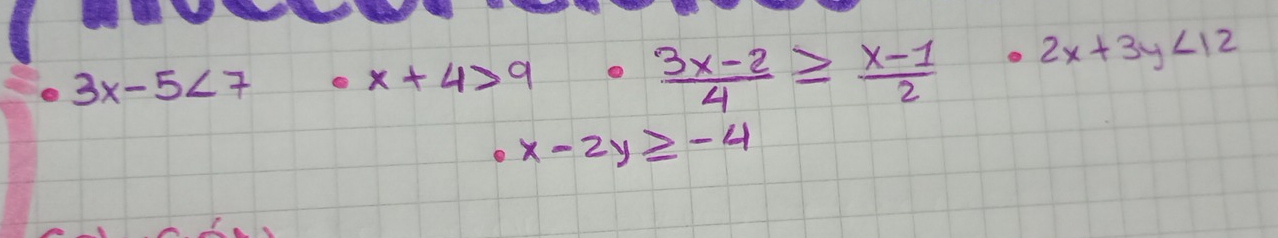 Inecuaciones
• 3x-5<7 • x+4>9 • \frac{3x-2}{4} ≥ \frac{x-1}{2} • 2x+3y<12
• x-2y≥-4